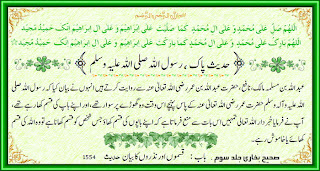 اللھم صل علی محمد وعلی ال محمد کما صلیت علی ابراھیم و علی ال ابراھیم انک حمید مجید
اللھم بارک علی محمد و علی ال محمد کما بارکت علی ابراھیم و علی ال ابراھیم انک حمید مجید
حدیث پاک ۔ رسول اللہ صلی اللہ علیہ وسلم
عبداللہ بن مسلمہ، مالک، نافع، حضرت عبداللہ بن عمر رضی اللہ تعالی عنہ سے روایت کرتے ہیں انہوں نے بیان کیا کہ رسول اللہ صلی
اللہ علیہ وآلہ وسلم حضرت عمر رضی اللہ تعالی عنہ کے پاس پہنچے اس وقت وہ گھوڑے پر سوار تھے، اور اپنے باپ کی قسم کھا رہے تھے،
آپ نے فرمایا خبردار اللہ تعالی تمہیں اس بات سے منع فرماتا ہے کہ اپنے باپوں کی قسم کھاؤ جس شخص کو قسم کھانا ہے تو وہ اللہ کی قسم
کھائے یا خاموش رہے۔
صحیح بخاری جلد سوم . باب : قسموں اور نذروں کا بیان حدیث 1554